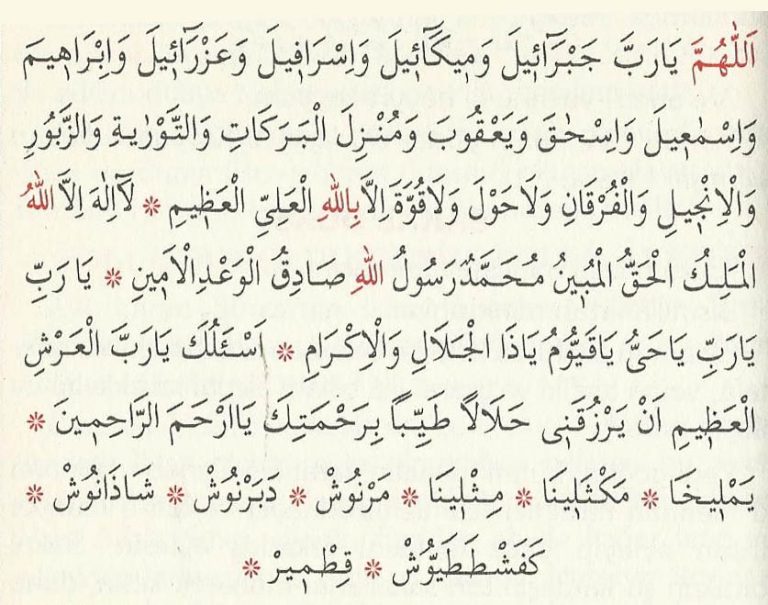 اَللّٰهُمَّ يَارَبَّ جَبْرَآئِيلَ وَمِيكَآئِيلَ وَاِسْرَافِيلَ وَعَزْرَآئِيلَ وَاِبْرَاهِيمَ
وَاِسْمٰعِيلَ وَاِسْحٰقَ وَيَعْقُوبَ وَمُنْزِلَ الْبَرَكَاتِ وَالتَّوْرٰيةِ وَالزَّبُورِ
وَالْاِنْجِيلِ وَالْفُرْقَانِ وَلَاحَوْلَ وَلَاقُوَّةَ اِلَّا بِاللهِ الْعَلِيِّ الْعَظِيمِ * لَآاِلٰهَ اِلَّا اللهُ
الْمَلِكُ الْحَقُّ الْمُبِينُ مُحَمَّدٌ رَسُولُ اللهِ صَادِقُ الْوَعْدِ الْاَمِينِ * يَا رَبِّ
يَارَبِّ يَاحَىُّ يَاقَيُّوُمُ يَاذَا الْجَلَالِ وَالْاِكْرَامِ * اَسْئَلُكَ يَارَبَّ الْعَرْشِ
الْعَظِيمِ اَنْ يَرْزُقَنِى حَلَالاً طَيِّباً بِرَحْمَتِكَ يَااَرْحَمَ الرَّاحِمِينَ *
يَمْلِيخَا * مَكْثَلِينَا * مِثْلِينَا * مَرْنُوشْ * دَبَرْنُوشْ * شَاذَنُوشْ *
كَفَشْطَطَيُوُشْ * قِطْمِيرْ *